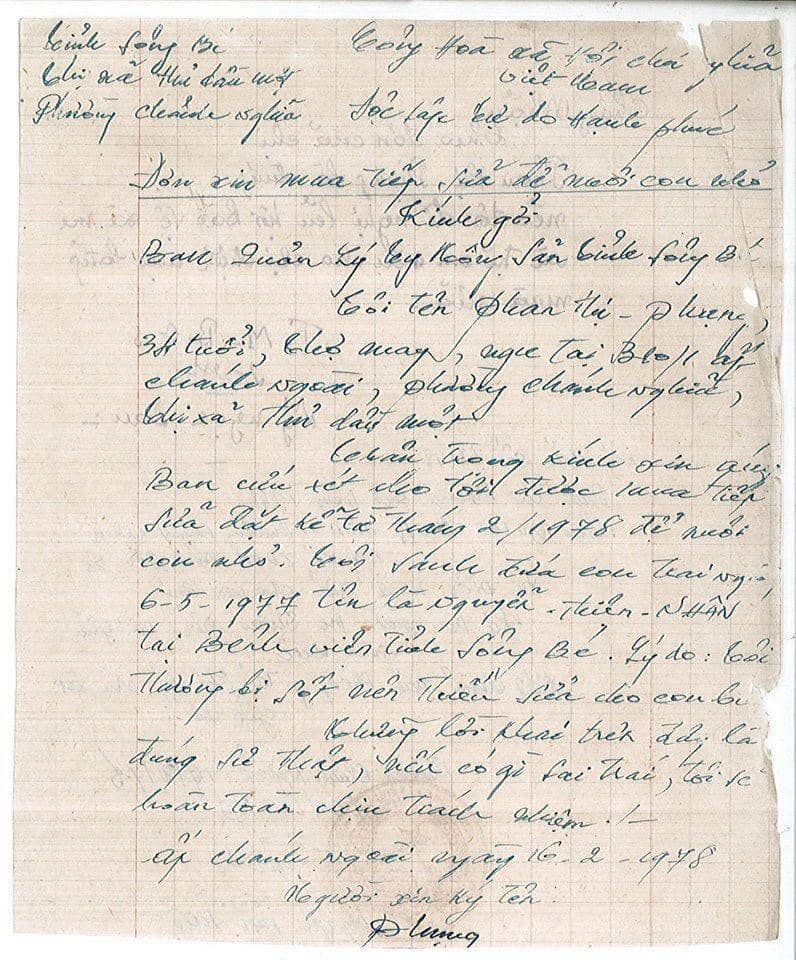 Tỉnh Sông Bé
Thị xã Thủ Dầu Một
Phường Chánh Nghĩa
Cộng Hoà xã Hội chủ nghĩa
Việt Nam
Độc lập Tự do Hạnh phúc
Đơn xin mua tiếp sữa để nuôi con nhỏ
Kính gởi
Ban Quản Lý Ty Nông Sản tỉnh Sông Bé
Tôi tên Phan Thị - Phụng,
34 tuổi, thợ may, ngụ tại B10/1 ấp
chánh ngoài, phường chánh nghĩa,
thị xã Thủ dầu một
Chân trọng kính xin quí
Ban cứu xét cho tôi được mua tiếp
sữa đặt kể từ tháng 2/1978 để nuôi
con nhỏ. Tôi sanh đứa con trai ngày
6-5-1977 tên là Nguyễn-Thiện-NHÂN
tại Bệnh viện Tỉnh Sông Bé. Lý do: tôi
thường bị sốt nên thiếu sữa cho con bú
Những lời khai trên đây là
đúng sự thật, nếu có gì sai trái, tôi sẽ
hoàn toàn chịu trách nhiệm ./-
ấp chánh ngoài ngày 16-2-1978
Người xin ký tên
Phụng